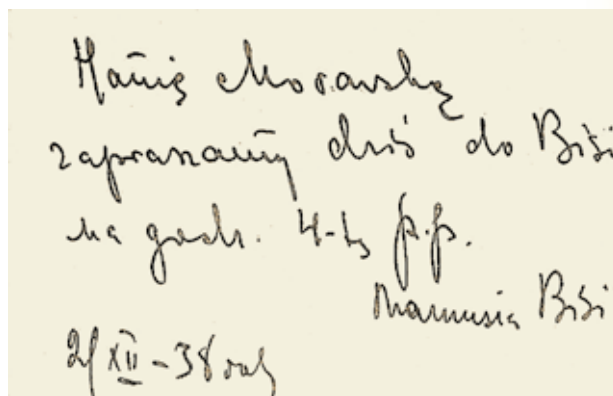 Hanię Morawską
zapraszamy dziś do Bisi
na godz. 4-tą p.p.
Mamusia Bisi
21 XII - 38 rok